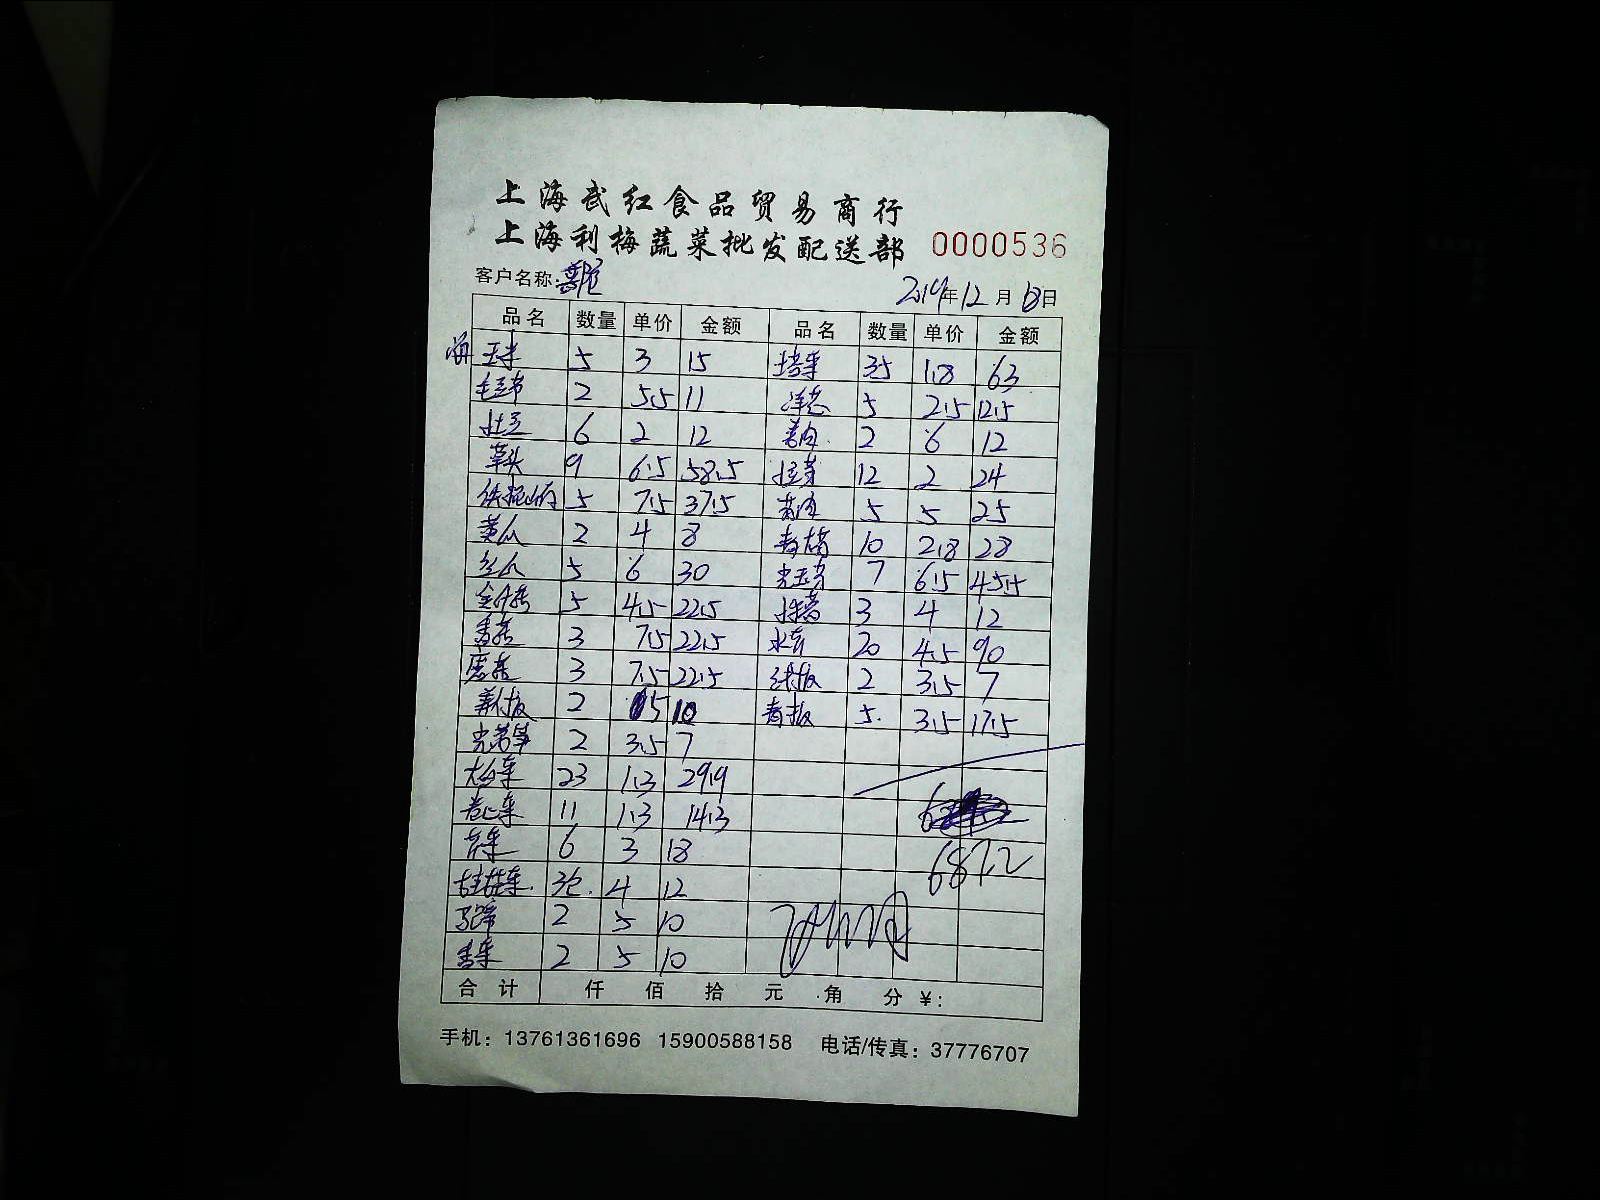 上海武红食品贸易商行
上海利梅蔬菜批发配送部 0000536
客户名称: 2019年12月18日
品名 数量 单价 金额 品名 数量 单价 金额
玉米 5 3 15 塔菜 35 1.8 63
毛豆节 2 5.5 11 洋葱 5 2.5 12.5
土豆 6 2 12 2 6 12
草头 9 6.5 58.5 12 2 24
铁棍山药 5 7.5 37.5 5 5 25
黄瓜 2 4 8 10 2.8 28
丝瓜 5 6 30 7 6.5 45.5
金针菇 5 4.5 22.5 3 4 12
香菇 3 7.5 22.5 20 4.5 90
3 7.5 22.5 线椒 2 3.5 7
2 5 10 青椒 5 3.5 17.5
2 3.5 7
大白菜 23 1.3 29.9
卷心菜 11 1.3 14.3
6 3 18 687.2
4 12
马蹄 2 5 10
香菜 2 5 10
合计 仟 佰 拾 元 角 分 ¥:
手机: 13761361696 15900588158 电话/传真: 37776707